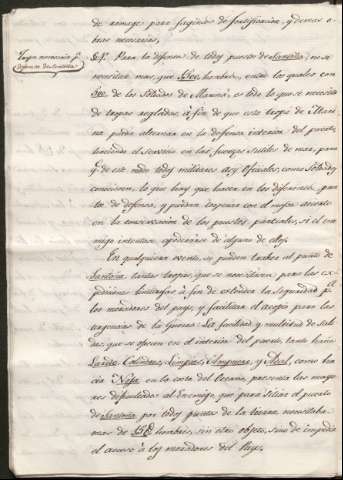 de ramage para faginas de fortificacion, y demas o-
bras necesarias,
Tropas necesarias pª
defensa de Santoña
Para la defensa de todos puestos de Santoña, no se
necesitan mas, que 800 hombres, entre los quales con
de los Soldados de Marina, es todo lo que se necesita
de tropas regladas, á fin de que esta tropa de Mari-
na pueda alternar en la defensa interior del puerto,
haciendo el servicio en las fuerzas Sutiles de mar, para
qe de este modo todos militares asi oficiales, como Soldados
conociesen, lo que hay que hacer en los diferentes, pun-
tos de defensa, y puedan operar con el mejor acierto
en la conservacion de los puestos parciales, si el ene-
migo intentase, apoderarse de alguno de ellos.
En qualquiera evento, se pueden traher al punto de
Santoña tantas tropas, que se necesitaren, para las ex-
pediciones, á fin de extender la seguridad pª
los moradores del pays, y facilitar el acopio para las
urgencias de la guerra. La facilidad y multitud de Sali-
das, que se ofrecen en el interior del puerto, tanto hacia
Laredo, Colindres, Limpias, Ampuero, y Real, como ha-
cia Noja en la costa del Oceano, presenta las mayo-
res dificultades al Enemigo, que para Sitiar el puerto
de Santoña por todos puntos de la tierra necesitaba
mas de hombres, sin otro objeto, sino de impedir
el acceso á los moradores del Pays.